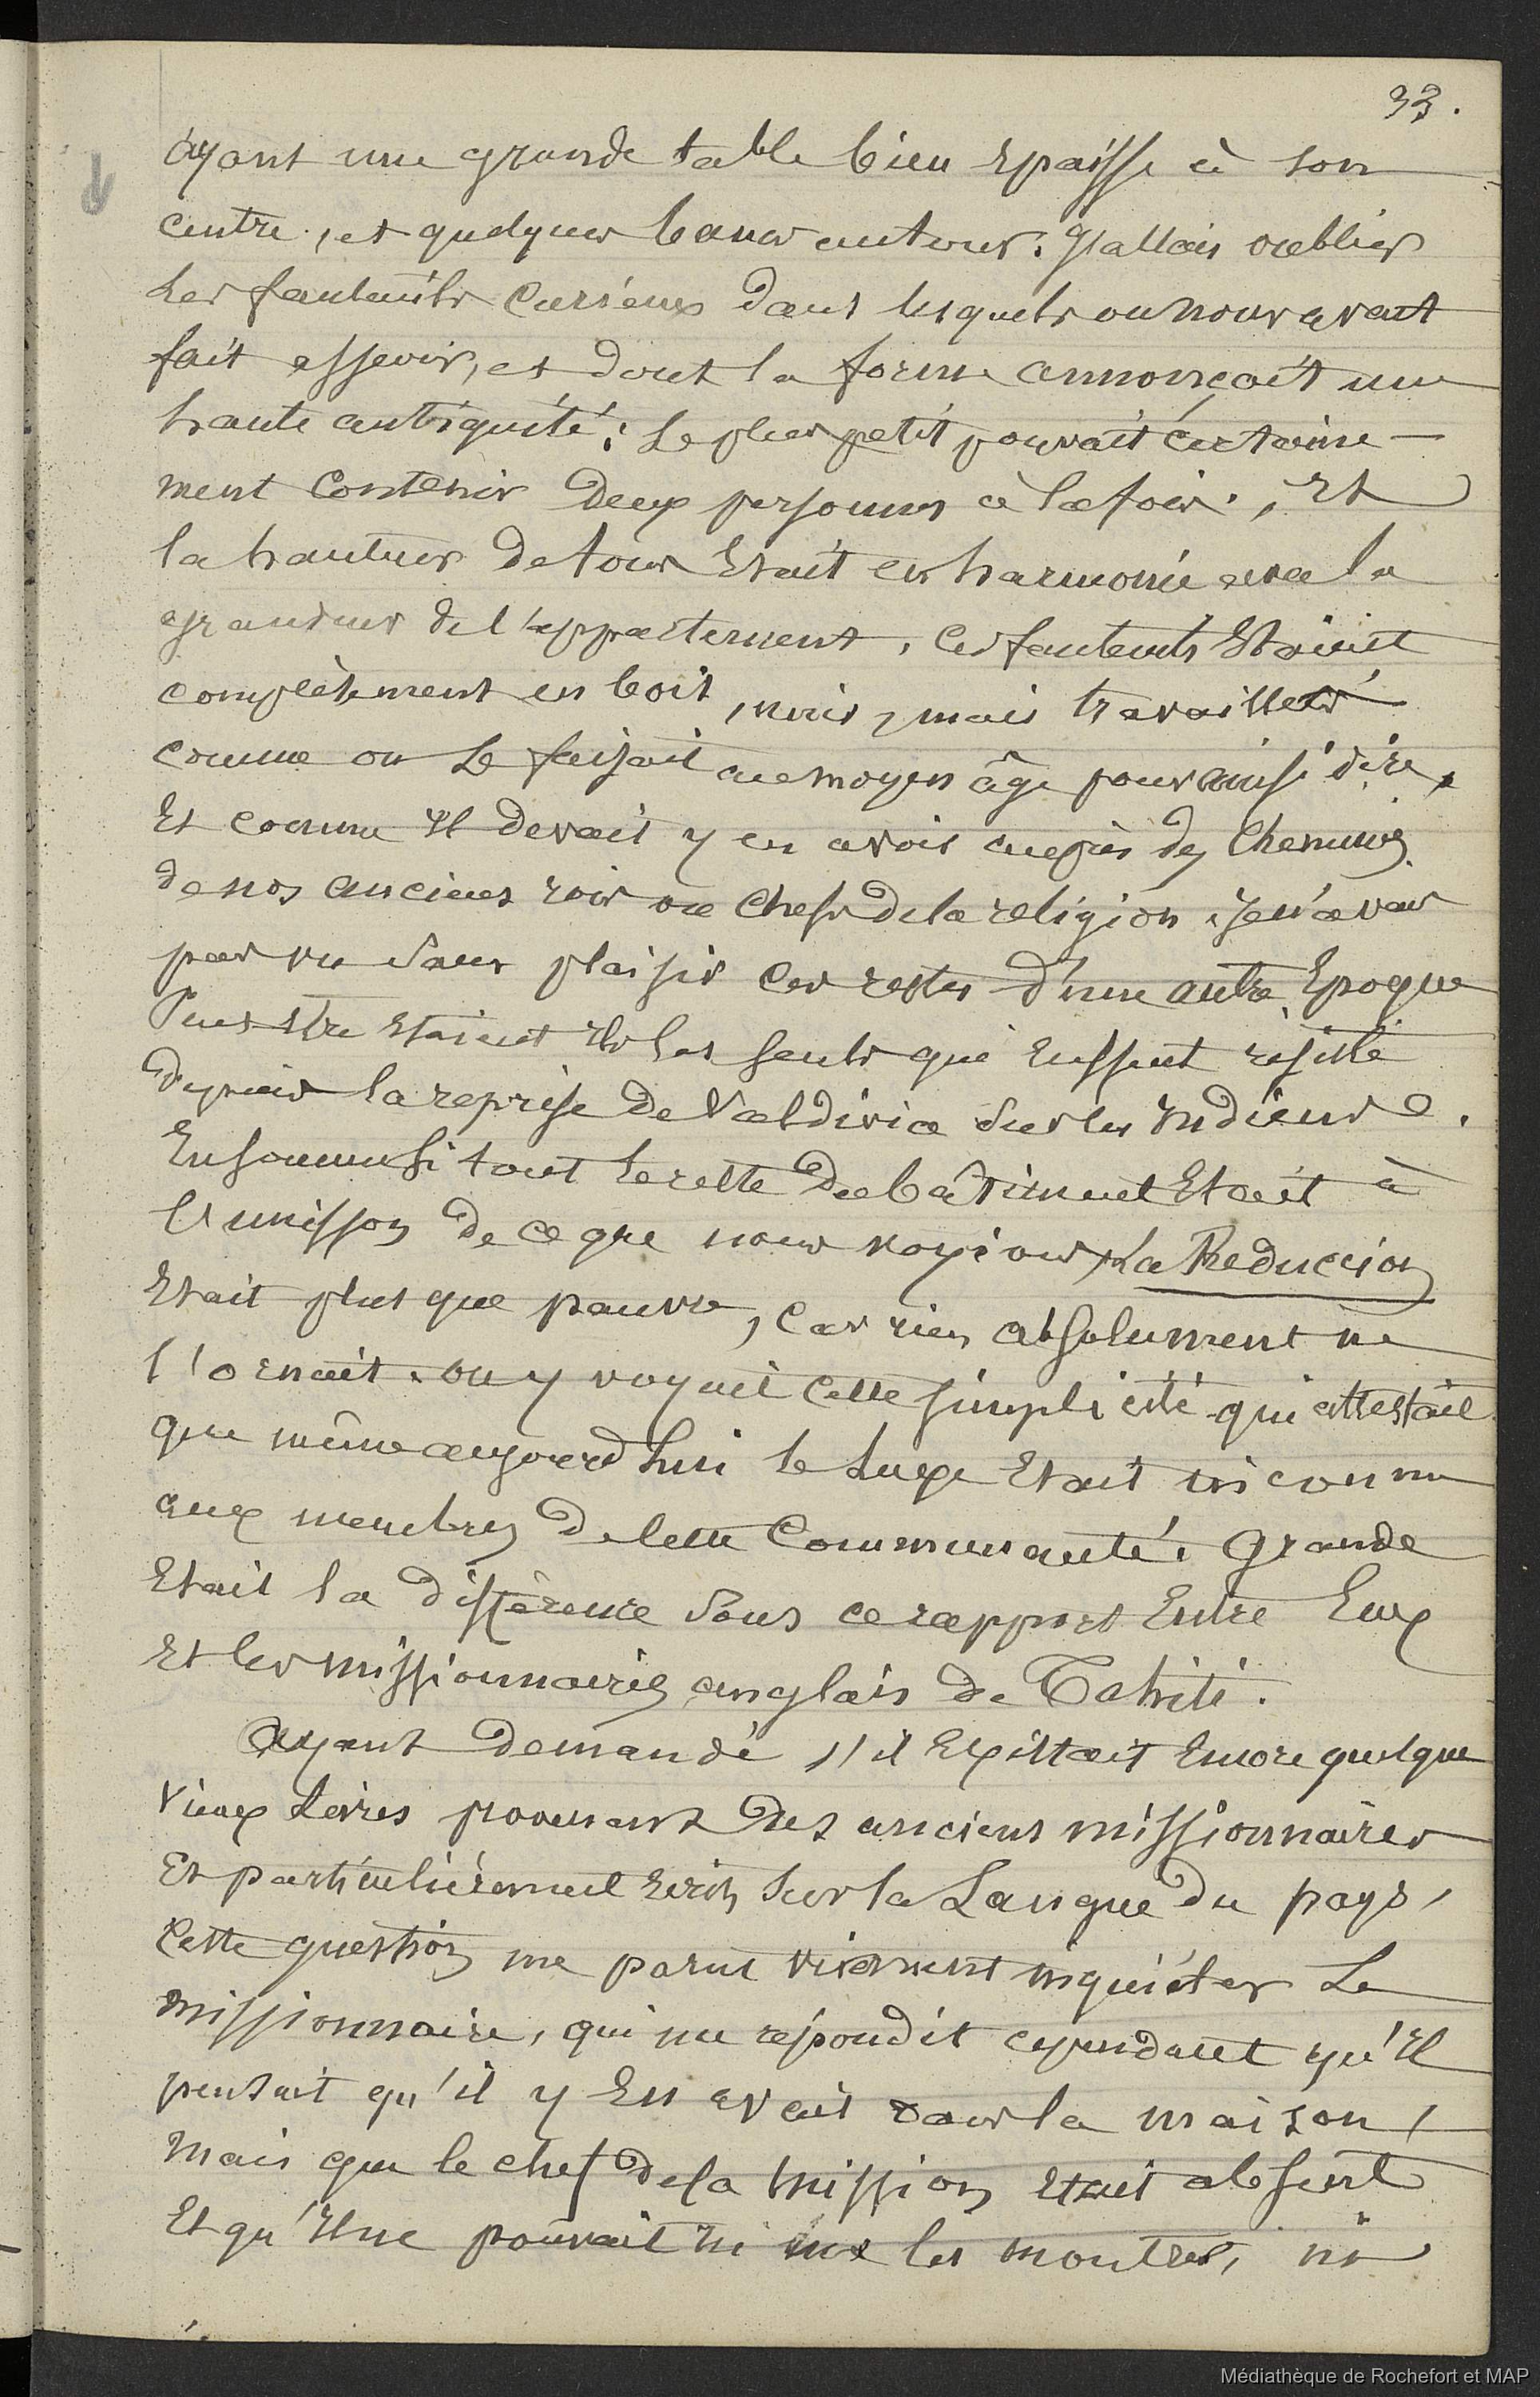 33.
ayant une grande table bien épaisse à son
centre, et quelques bancs autour. J'allais oublier
les fauteuils curieux dans lesquels on nous avait
fait asseoir, et dont la forme annonçait une
haute antiquité; le plus petit pouvait certaine-
ment contenir deux personnes à la fois, et
la hauteur de tous était en harmonie avec la
grandeur de l'appartement. Ces fauteuils étaient
complètement en bois, noirs, mais travaillés
comme on le faisait au moyen âge pour ainsi dire,
Et comme il devait y en avoir auprès des cheminées
de nos anciens rois ou chefs de la religion. Je n'avais
pas vu sans plaisir ces restes d'une autre Epoque
Peut être étaient ils les seuls qui eussent résisté
depuis la reprise de Valdivia sur les Indiens.
En somme si tout le reste du bâtiment Etait à
l'unisson de ce que nous voyions, La Reduccion
Etait plus que pauvre, car rien absolument ne
l'ornait. on y voyait cette simplicité qui attestait
que même aujourd'hui le luxe Etait inconnu
aux membres de cette Communauté. Grande
Etait la différence sous ce rapport Entre Eux
et les missionnaires anglais de Tahiti.
Ayant demandé s'il Existait Encore quelque
vieux livres provenant des anciens missionnaires
Et particulièrement écrits sur la Langue du pays,
Cette question me parut vivement inquiéter Le
missionnaire, qui me répondit cependant qu'Il
pensait qu'il y En avait dans la maison,
Mais que le chef de la Mission Etait absent
Et qu'Il ne pouvait ni me les montrer, ni
Médiathèque de Rochefort et MAP